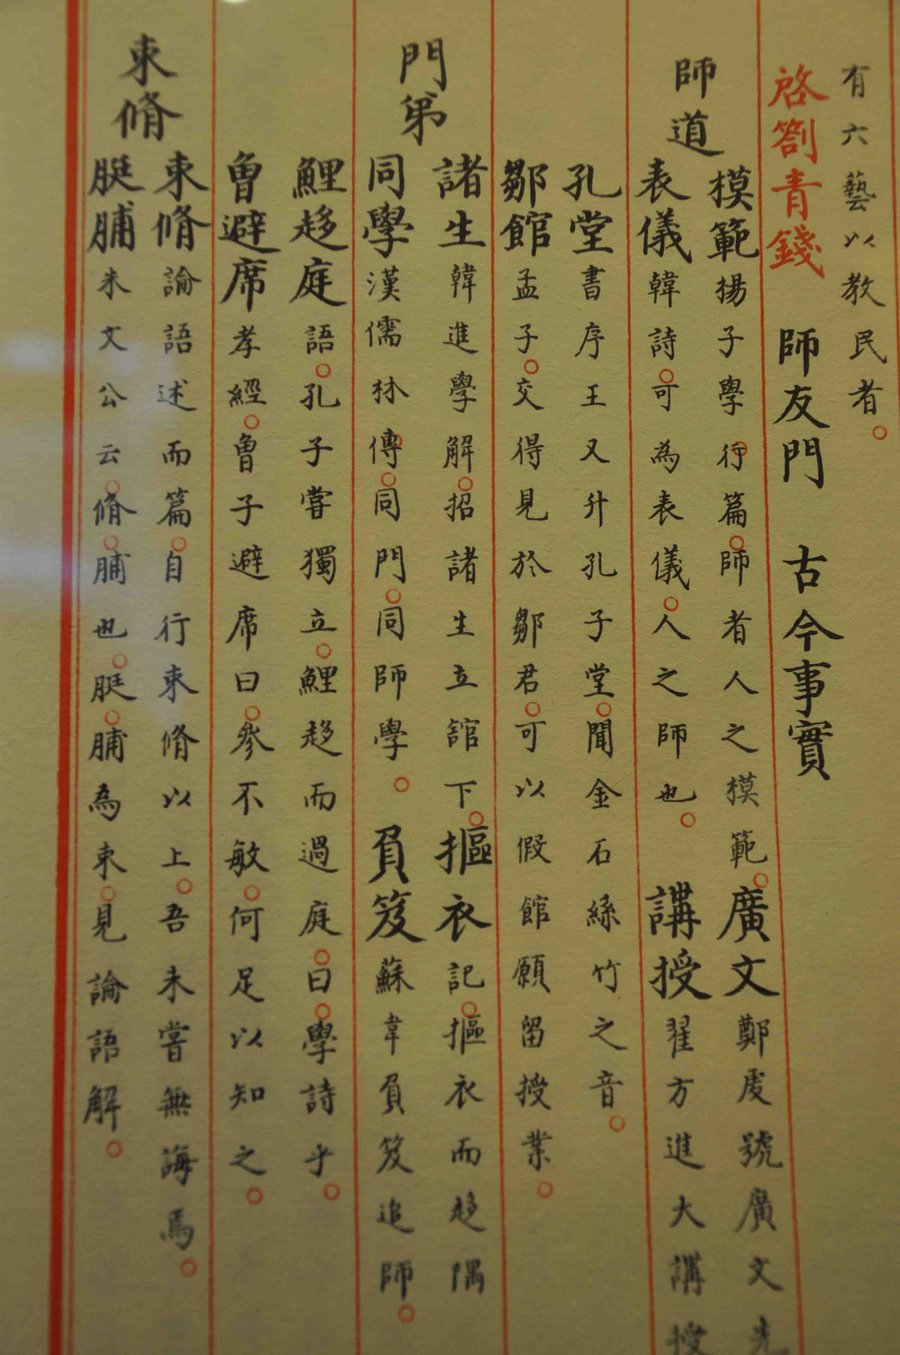 有六藝以教民者。
啓劄青錢 師友門 古今事實
師道
模範揚子學行篇。師者人之模範。廣文鄭虔號廣文先
表儀韓詩。可為表儀。人之師也。講授翟方進大講授
孔堂書序王又升孔子堂。聞金石絲竹之音。
鄒館孟子。交得見於鄒君。可以假館願留授業。
門弟
諸生韓進學解。招諸生立館下。摳衣記。摳衣而趍隅
同學漢儒林傳。同門。同師學。負笈蘇韋負笈追師。
鯉趍庭語。孔子嘗獨立。鯉趍而過庭。曰。學詩乎。
曾避席孝經。曾子避席曰。參不敏。何足以知之。
束脩
束脩論語述而篇。自行束脩以上。吾未嘗無誨焉。
脡脯朱文公云。脩。脯也。脡。脯為束。見論語解。